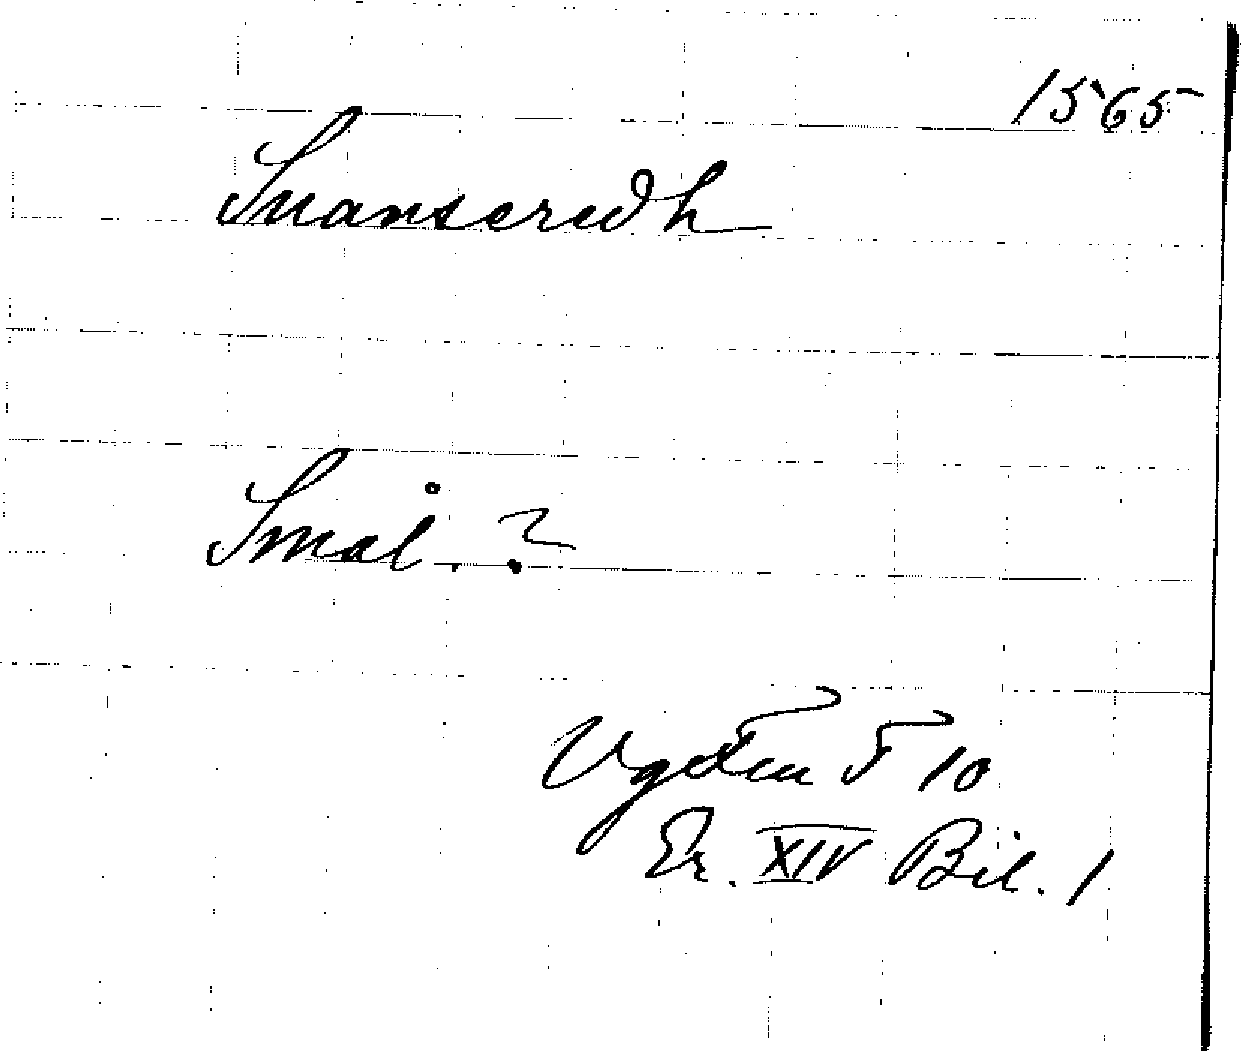 1565
Snanseredh
Smål. ?
Ugdln 5 10
Er. XIV Bil. 1